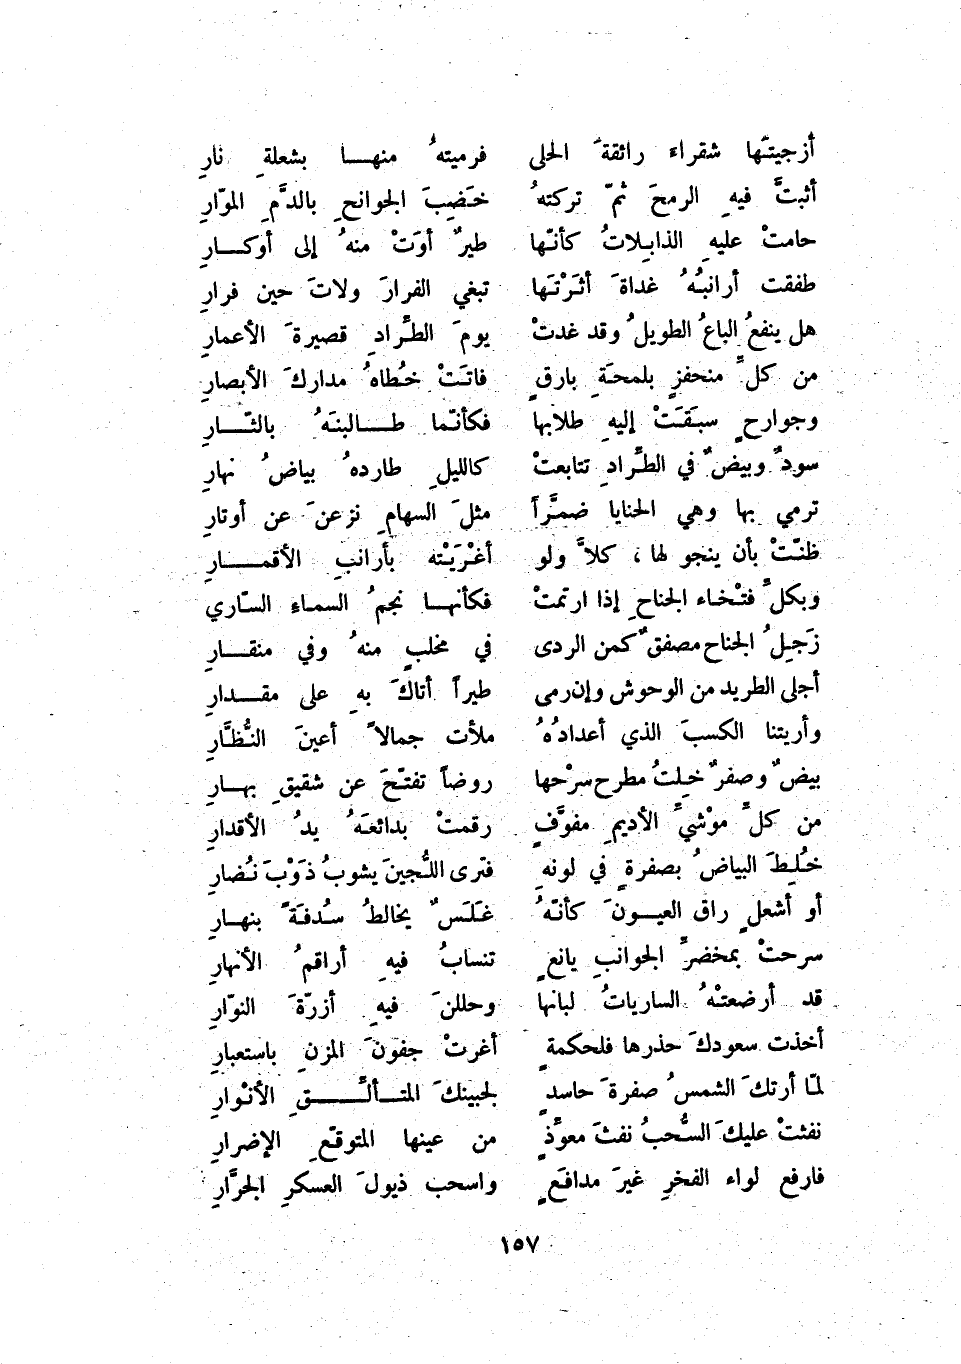 أزجيتَها شقراء رائقةَ الحلى فرميتهُ منهـــا بشعلةِ نارِ
أثبتَّ فيهِ الرمحَ ثمّ تركتهُ خَضِبَ الجوانحِ بالدَّمِ الموّارِ
حامتْ عليهِ الذابلاتُ كأنّها طيرٌ أوَتْ منهُ إلى أوكـــارِ
طفقت أرانبُهُ غداةَ أثَرْتَها تبغي الفرارَ ولاتَ حين فرارِ
هل ينفعُ الباعُ الطويلُ وقد غدتْ يومَ الطَّرادِ قصيرةَ الأعمارِ
من كلِّ منحفزٍ بلمحَةِ بارقٍ فاتَتْ خُطاهُ مداركَ الأبصارِ
وجوارحٍ سبَقَتْ إليهِ طلابها فكأنّما طـــالبنَهُ بالثّـــارِ
سودٌ وبيضٌ في الطَّرادِ تتابعتْ كالليلِ طاردهُ بياضُ نهارِ
ترمي بها وهي الحنايا ضمَّراً مثلَ السهامِ نزعنَ عن أوتارِ
ظنّتْ بأن ينجو لها ، كلاَّ ولو أغْرَيْته بأرانبِ الأقمـــارِ
وبكلِّ فتْخاء الجناحِ إذا ارتمتْ فكأنهـا نجمُ السماءِ السّاري
زَجِلُ الجناح مصفقٌ كمن الردى في مخلبٍ منهُ وفي منقـــارِ
أجلى الطريد من الوحوش وإن رمى طيراً أتاكَ بهِ على مقـدارِ
وأريتنا الكسبَ الذي أعدادُهُ ملأت جمالاً أعينَ النُّظَّارِ
بيضٌ وصفرٌ خِلتُ مطرح سرْحها روضاً تفتّحَ عن شقيقِ بهـارِ
من كلِّ موْشيِّ الأديمِ مفوَّفٍ رقمتْ بدائعَهُ يدُ الأقدارِ
خُلِطَ البياضُ بصفرةٍ في لونهِ فترى اللُّجينَ يشوبُ ذَوْبَ نُضارِ
أو أشعلٍ راق العيـــونَ كأنّهُ غَلَسٌ يخالطُ سُدفَةً بنهـارِ
سرحتْ بمخضرِّ الجوانبِ يانعٍ تنسابُ فيهِ أراقمُ الأنهارِ
قد أرضعتْهُ السارياتُ لبانها وحللنَ فيهِ أزرّةَ النوّارِ
أخذت سعودكَ حذرها فلحكمةٍ أغرتْ جفونَ المزنِ باستعبارِ
لمّا أرتكَ الشمسُ صفرةَ حاسدٍ لجبينكَ المتـــألِّـــقِ الأنْوارِ
نفثتْ عليكَ السُّحبُ نفثَ معوِّذٍ من عينها المتوقّعِ الإضرارِ
فارفع لواء الفخرِ غيرَ مدافَعٍ واسحب ذيولَ العسكرِ الجرَّارِ
١٥٧